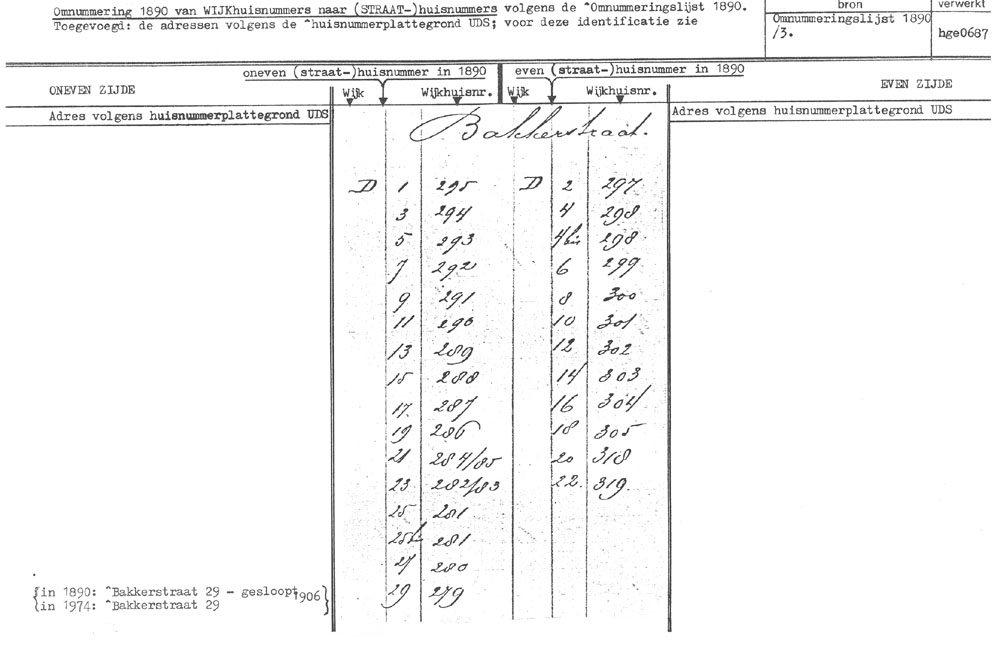 Omnummering 1890 van WIJKhuisnummers naar (STRAAT-)huisnummers volgens de ^Omnummeringslijst 1890.
Toegevoegd: de adressen volgens de ^huisnummerplattegrond UDS; voor deze identificatie zie
bron
Omnummeringslijst 1890
/3.
verwerkt
hge0687
oneven (straat-)huisnummer in 1890 even (straat-)huisnummer in 1890
ONEVEN ZIJDE Wijk Wijkhuisnr. Wijk Wijkhuisnr. EVEN ZIJDE
Adres volgens huisnummerplattegrond UDS Adres volgens huisnummerplattegrond UDS
Bakkerstraat.
D 1 295 D 2 297
3 294 4 298
5 293 4bis 298
7 292 6 299
9 291 8 300
11 290 10 301
13 289 12 302
15 288 14 303
17. 287 16 304
19 286 18 305
21 284/85 20 318
23 282/83 22. 319.
25 281
25b 281
27 280
29 279
{in 1890: ^Bakkerstraat 29 - gesloopt 1906}
{in 1974: ^Bakkerstraat 29 }